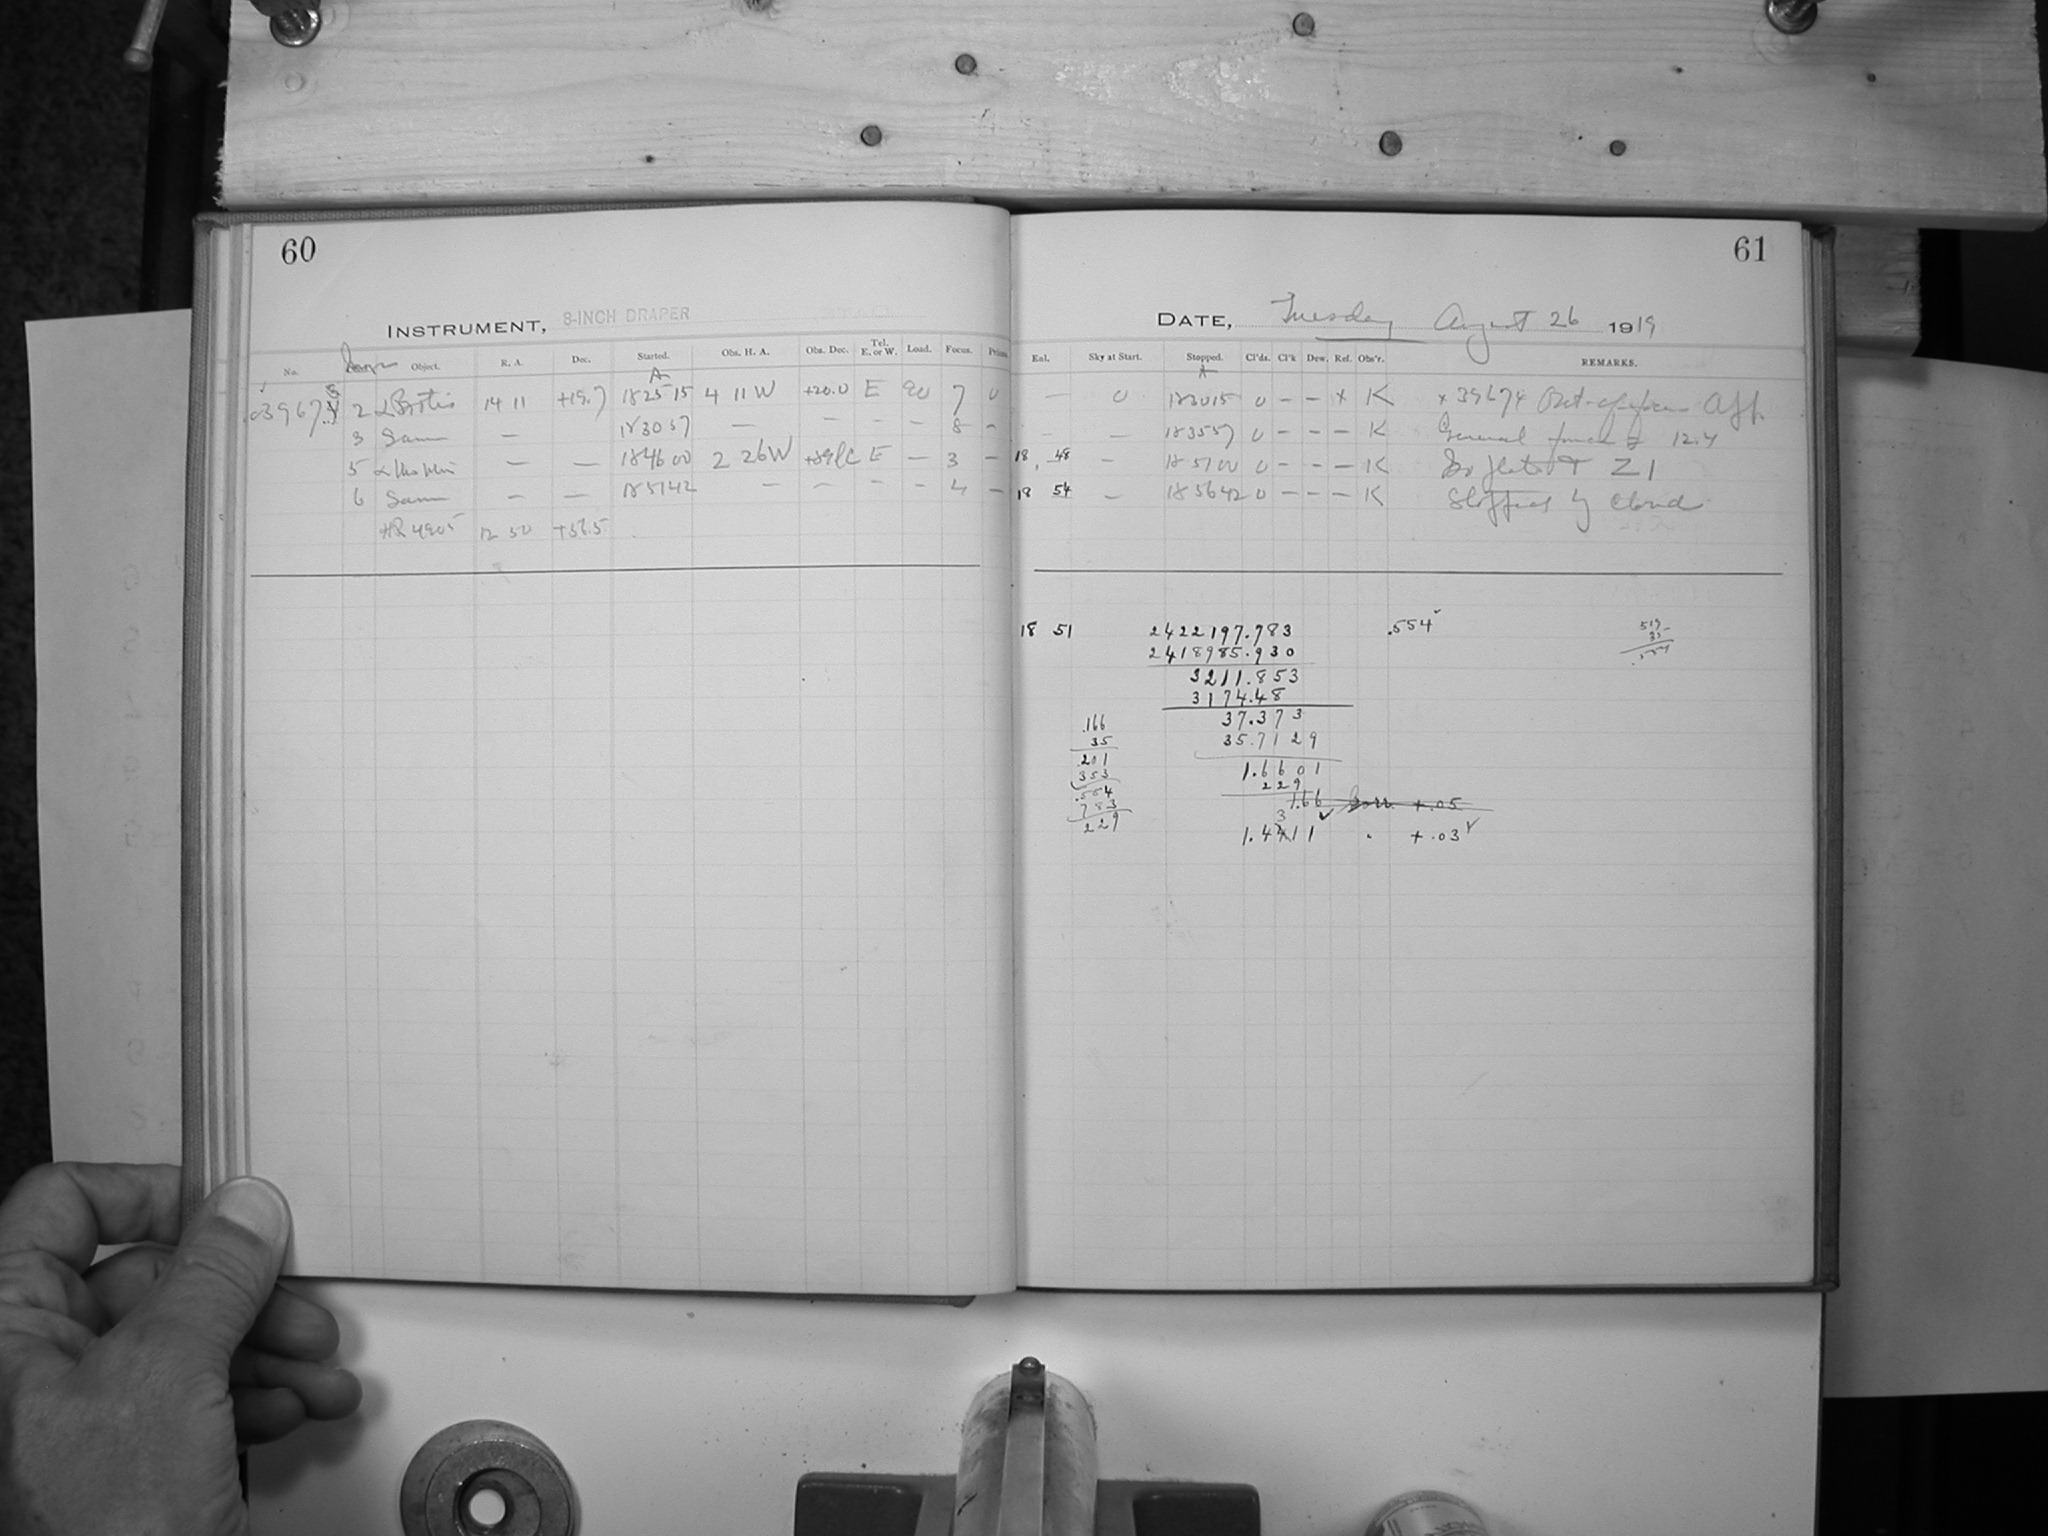 60
INSTRUMENT, 8-INCH DRAPER
No. Object. R. A. Dec. Started. Obs. H. A. Obs. Dec. Tel. E. or W. Load. Focus.
A
2 α Bootis 14 11 +19.7 18 25 15 4 11 W +20.0 E 90 7 0
3 Same — 18 30 57 — — — — 8 —
5 — — 18 46 00 2 26 W E — 3 —
6 Same — — 18 51 42 — — — — 4 —
HR 4905 12 50 +56.5
61
DATE, Tuesday August 26 1919
Enl. Sky at Start. Stopped. Cl'ds. Cl'k Dew. Ref. Obs'r. REMARKS.
A
— 0 18 30 15 0 — — x K x 39674
— — 18 35 57 0 — — — K 12.4
18 48 — 18 51 00 0 — — — K Z 1
18 54 — 18 56 42 0 — — — K Stopped by clouds
18 51 2422197.783 .554
2418985.930
3211.853
3174.48
37.373
35.7129
1.6601
229
1.66 + .05
3
1.4411 + .03
.166
35
.201
353
.554
783
229
519
35
.554